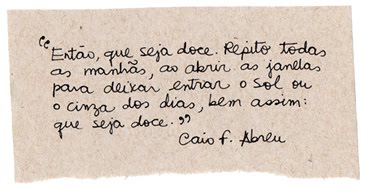 “Então, que seja doce. Repito todas
as manhãs, ao abrir as janelas
para deixar entrar o sol ou
o cinza dos dias, bem assim:
que seja doce.”
Caio F. Abreu